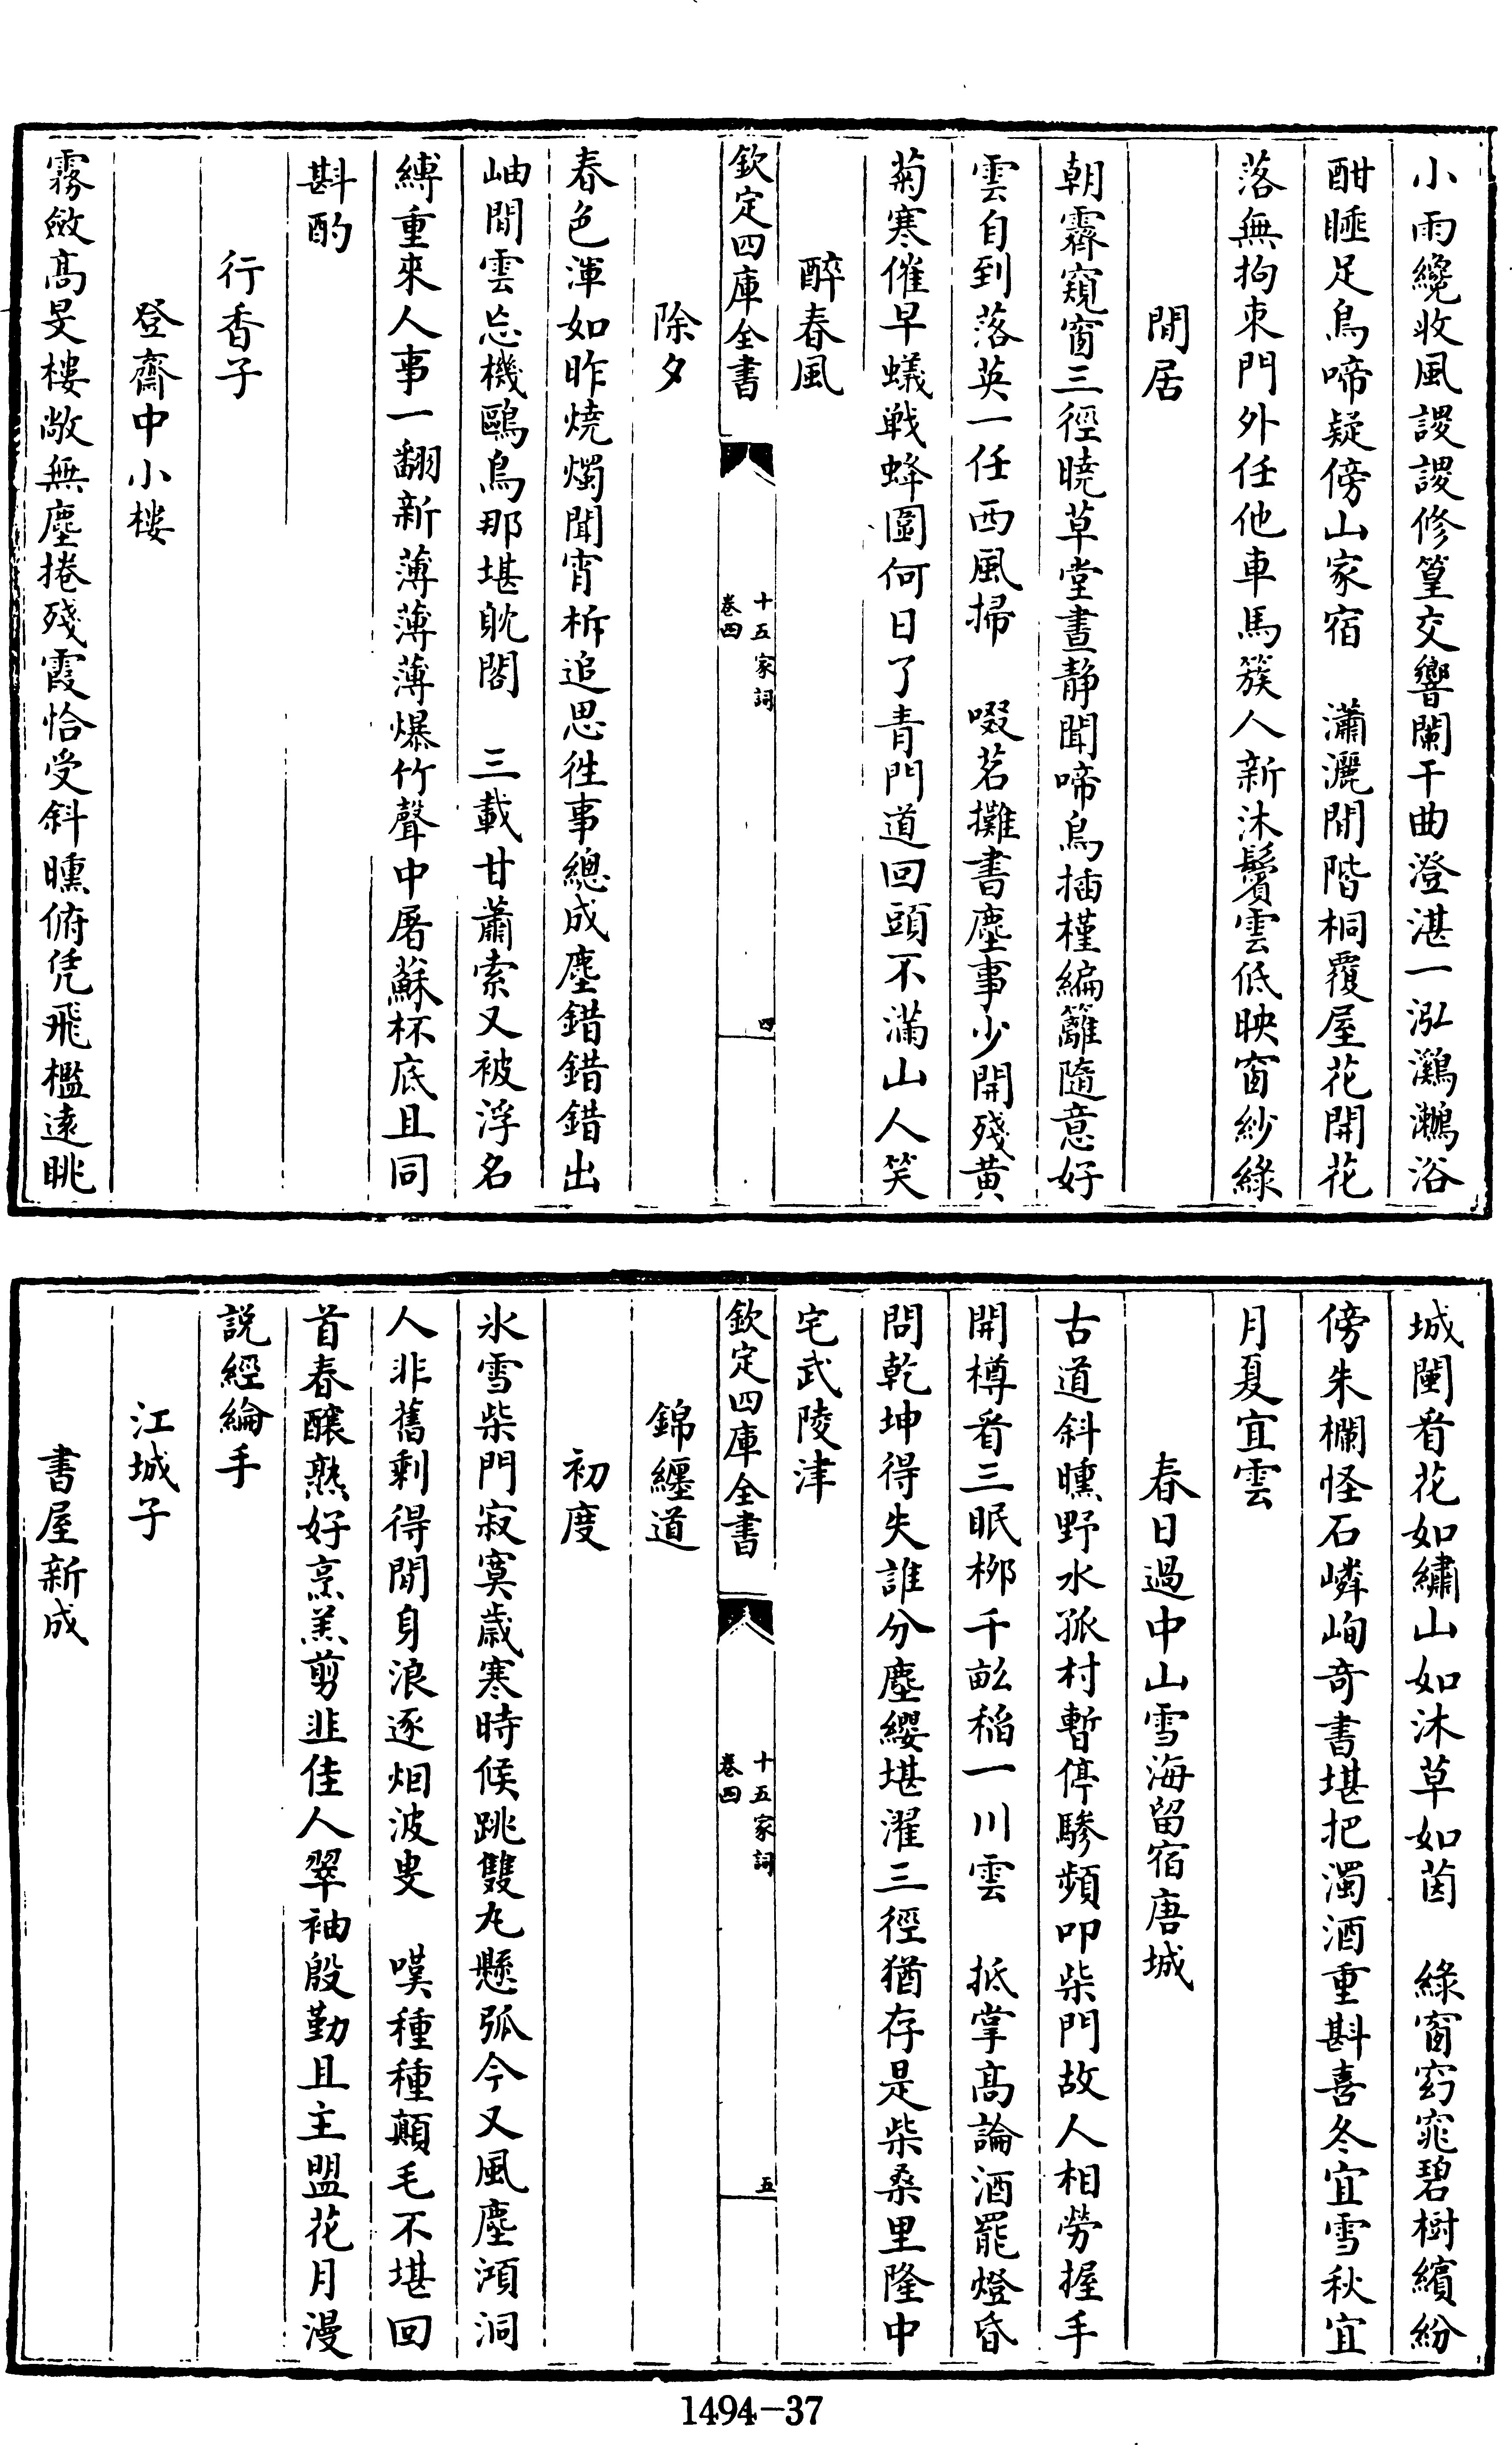 小雨纔收風謖謖修篁交響闌干曲澄湛一泓鸂鶒浴
酣睡足鳥啼疑傍山家宿　瀟灑閒階桐覆屋花開花
落無拘束門外任他車馬簇人新沐鬢雲低映窗紗綠
閒居
朝霽窺窗三徑曉草堂晝靜聞啼鳥插槿編籬隨意好
雲自到落英一任西風掃　啜茗攤書塵事少開殘黃
菊寒催早蟻戰蜂圜何日了青門道回頭不滿山人笑
醉春風
欽定四庫全書
十五家詞
卷四
四
除夕
春色渾如昨燒燭聞宵柝追思徃事總成塵錯錯錯出
岫閒雲忘機鷗鳥那堪躭閣　三載甘蕭索又被浮名
縛重來人事一翻新薄薄薄爆竹聲中屠蘇杯底且同
斟酌
行香子
登齋中小樓
霧斂高旻樓敞無塵捲殘霞恰受斜曛俯凭飛檻遠眺
城闉看花如繡山如沐草如茵　綠窗窈窕碧樹繽紛
傍朱欄怪石嶙峋奇書堪把濁酒重斟喜冬宜雪秋宜
月夏宜雲
春日過中山雪海留宿唐城
古道斜曛野水孤村暫停驂頻叩柴門故人相勞握手
開樽看三眠柳千畝稻一川雲　抵掌高論酒罷燈昏
問乾坤得失誰分塵纓堪濯三徑猶存是柴桑里隆中
宅武陵津
欽定四庫全書
十五家詞
卷四
五
錦纏道
初度
氷雪柴門寂寞歲寒時候跳雙丸懸弧今又風塵澒洞
人非舊剩得閒身浪逐烟波叟　嘆種種顛毛不堪回
首春醸熟好烹羔剪韭佳人翠袖殷勤且主盟花月漫
說經綸手
江城子
書屋新成
1494-37